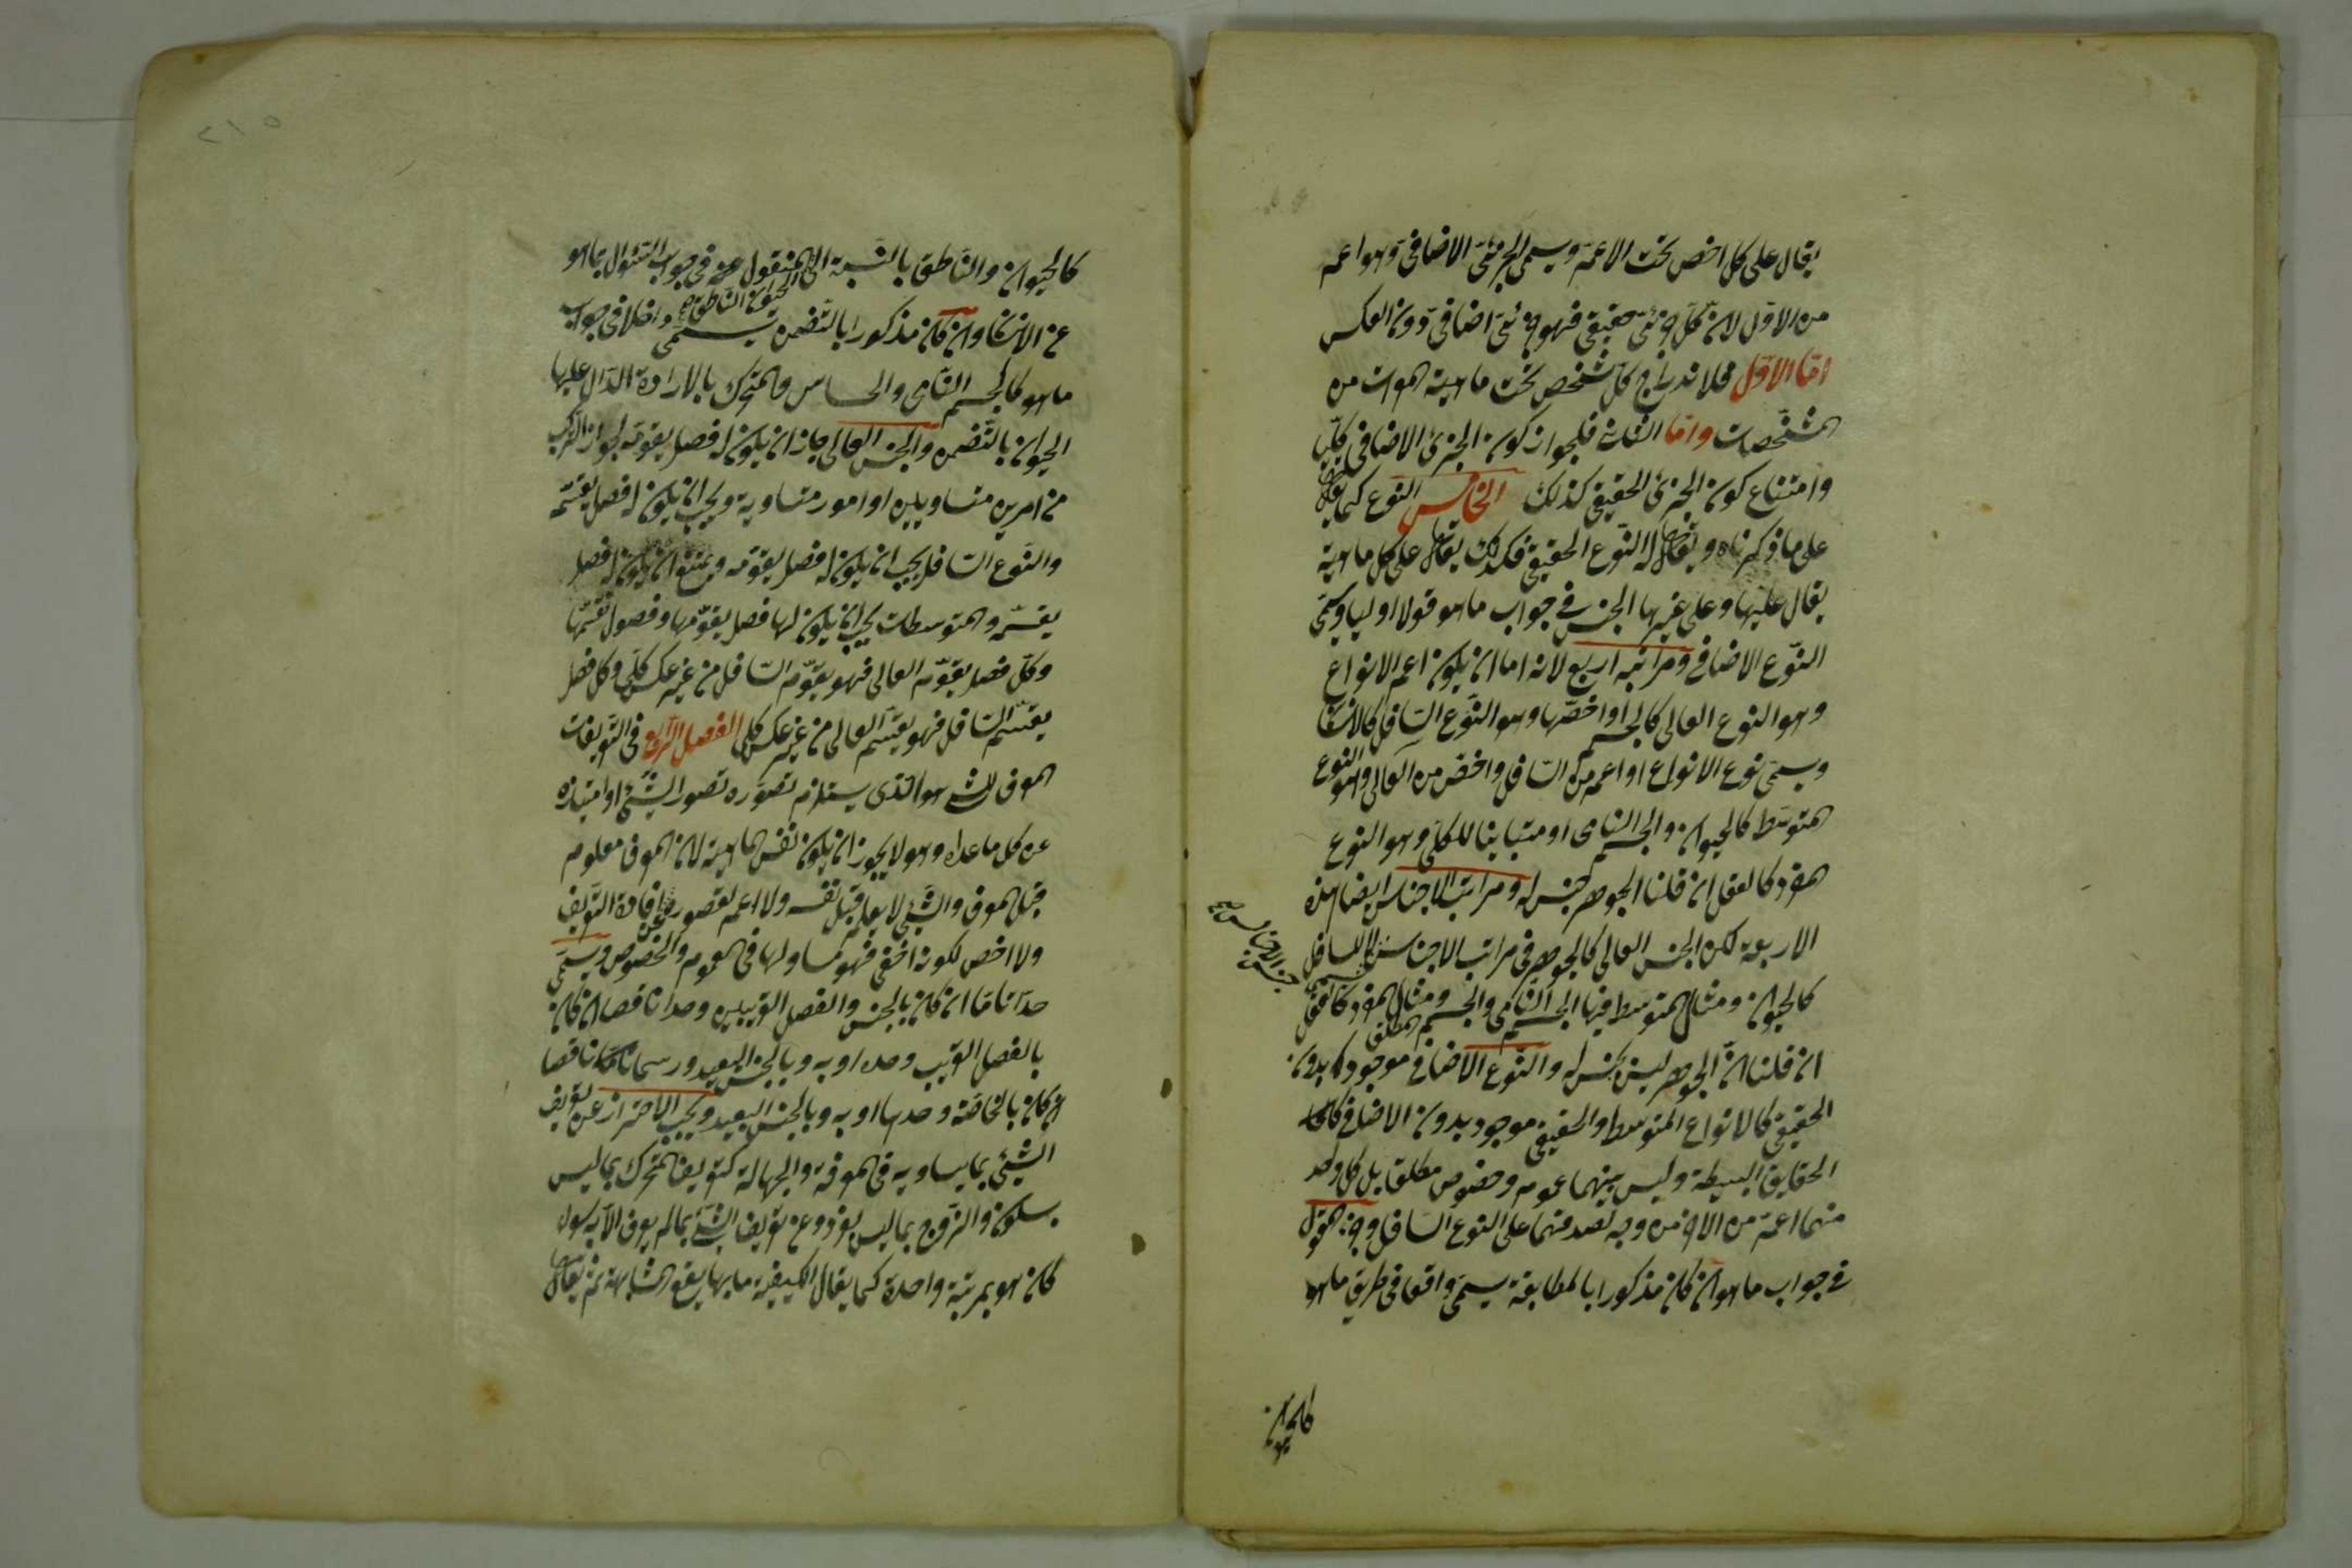 يقال على كل اخص تحت الاعم ويسمى الجزئى الاضافى وهو اعم
من الاول لان كل جزئى حقيقى فهو جزئى اضافى دون العكس
اما الاول فلاندراج كل شخص تحت ماهية المعراة من
المشخصات واما الثانى فلجواز كون الجزئى الاضافى كليا
وامتناع كون الجزئى الحقيقى كذلك الخامس النوع كما يقال
على ما ذكرناه ويقال له النوع الحقيقى فكذلك يقال على كل ماهية
يقال عليها وعلى غيرها الجنس فى جواب ما هو قولا اوليا ويسمى
النوع الاضافى ومراتبه اربع لانه اما ان يكون اعم الانواع
وهو النوع العالى كالجسم او اخصها وهو النوع السافل كالانسان
ويسمى نوع الانواع او اعم من السافل واخص من العالى وهو النوع
المتوسط كالحيوان والجسم النامى او متباينا للكل وهو النوع
المفرد كالعقل ان قلنا الجوهر جنس له ومراتب الاجناس ايضا هذه
الاربعة لكن الجنس العالى كالجوهر فى مراتب الاجناس يسمى جنس الاجناس لا السافل
كالحيوان ومثال المتوسط فيها الجسم النامى والجسم المطلق ومثال المفرد كالعقل
ان قلنا ان الجوهر ليس بجنس له والنوع الاضافى موجود بدون
الحقيقى كالانواع المتوسط والحقيقى موجود بدون الاضافى كالحقا
الحقايق البسيطة وليس بينهما عموم وخصوص مطلق بل كل واحد
منهما اعم من الاخر من وجه لصدقهما على النوع السافل وجزء المقول
فى جواب ما هو ان كان مذكورا بالمطابقة يسمى واقعا فى طريق ما هو
كالحيوان
كالحيوان والناطق بالنسبة الى الحيوان الناطق المقول فى جواب السئوال بما هو
عن الانسان وان كان مذكورا بالتضمن يسمى داخلا فى جواب
ما هو كالجسم النامى والحساس والمتحرك بالارادة الدال عليها
الحيوان بالتضمن والجنس العالى جاز ان يكون له فصل يقومه لجواز تركبه
من امرين متساويين او امور متساوية ويجب ان يكون له فصل يقسمه
والنوع السافل يجب ان يكون له فصل يقومه ويمتنع ان يكون له فصل
يقسمه والمتوسطات يجب ان يكون لها فصل يقومها وفصول تقسمها
وكل فصل يقوم العالى فهو يقوم السافل من غير عكس كلى وكل فصل
يقسم السافل فهو يقسم العالى من غير عكس كلى الفصل الرابع فى التعريفات
المعرف للشئ هو الذى يستلزم تصوره تصور الشئ او امتيازه
عن كل ما عداه وهو لا يجوز ان يكون نفس الماهية لان المعرف معلوم
قبل المعرف والشئ لا يعلم قبل نفسه ولا اعم لقصوره عن افادة التعريف
ولا اخص لكونه اخفى فهو مساو لها فى العموم والخصوص ويسمى
حدا تاما ان كان بالجنس والفصل القريبين وحدا ناقصا ان كان
بالفصل القريب وحده او به وبالجنس البعيد ورسما ناقصا
ان كان بالخاصة وحدها او به وبالجنس البعيد ويجب الاحتراز عن تعريف
الشئ بما يساويه فى المعرفة والجهالة كتعريف المتحرك بما ليس
بسكون والزوج بما ليس بفرد وعن تعريف الشئ بما لم يعرف الا به سواء
كان هو بمرتبة واحدة كما يقال الكيفية ما بها يقع المشابهة ثم يقال